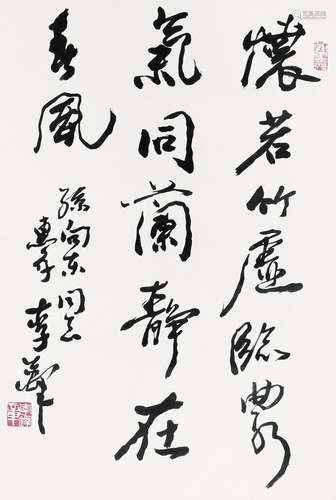 懷若竹虛臨曲水
氣同蘭靜在
春風
孫向東同志
惠存 李鐸